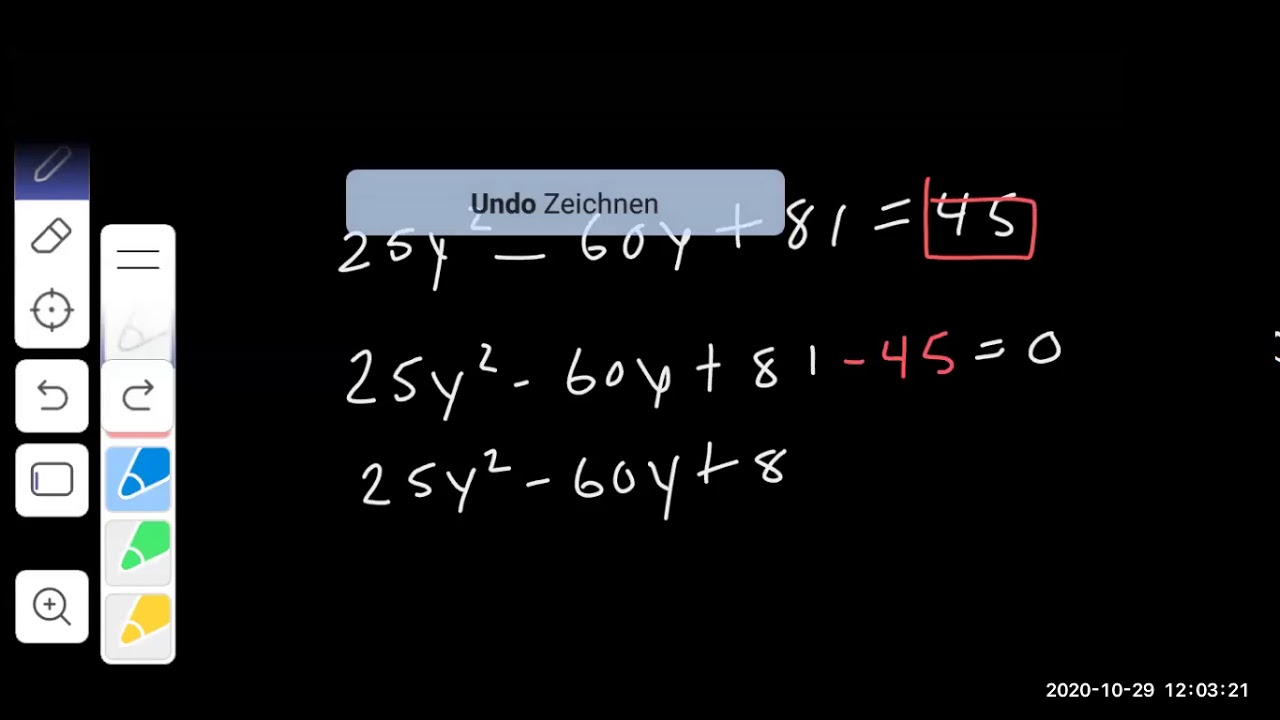 Undo Zeichnen
25y² – 60y + 81 = 45
25y² - 60y + 81 - 45 = 0
25y² - 60y + 8
2020-10-29 12:03:21